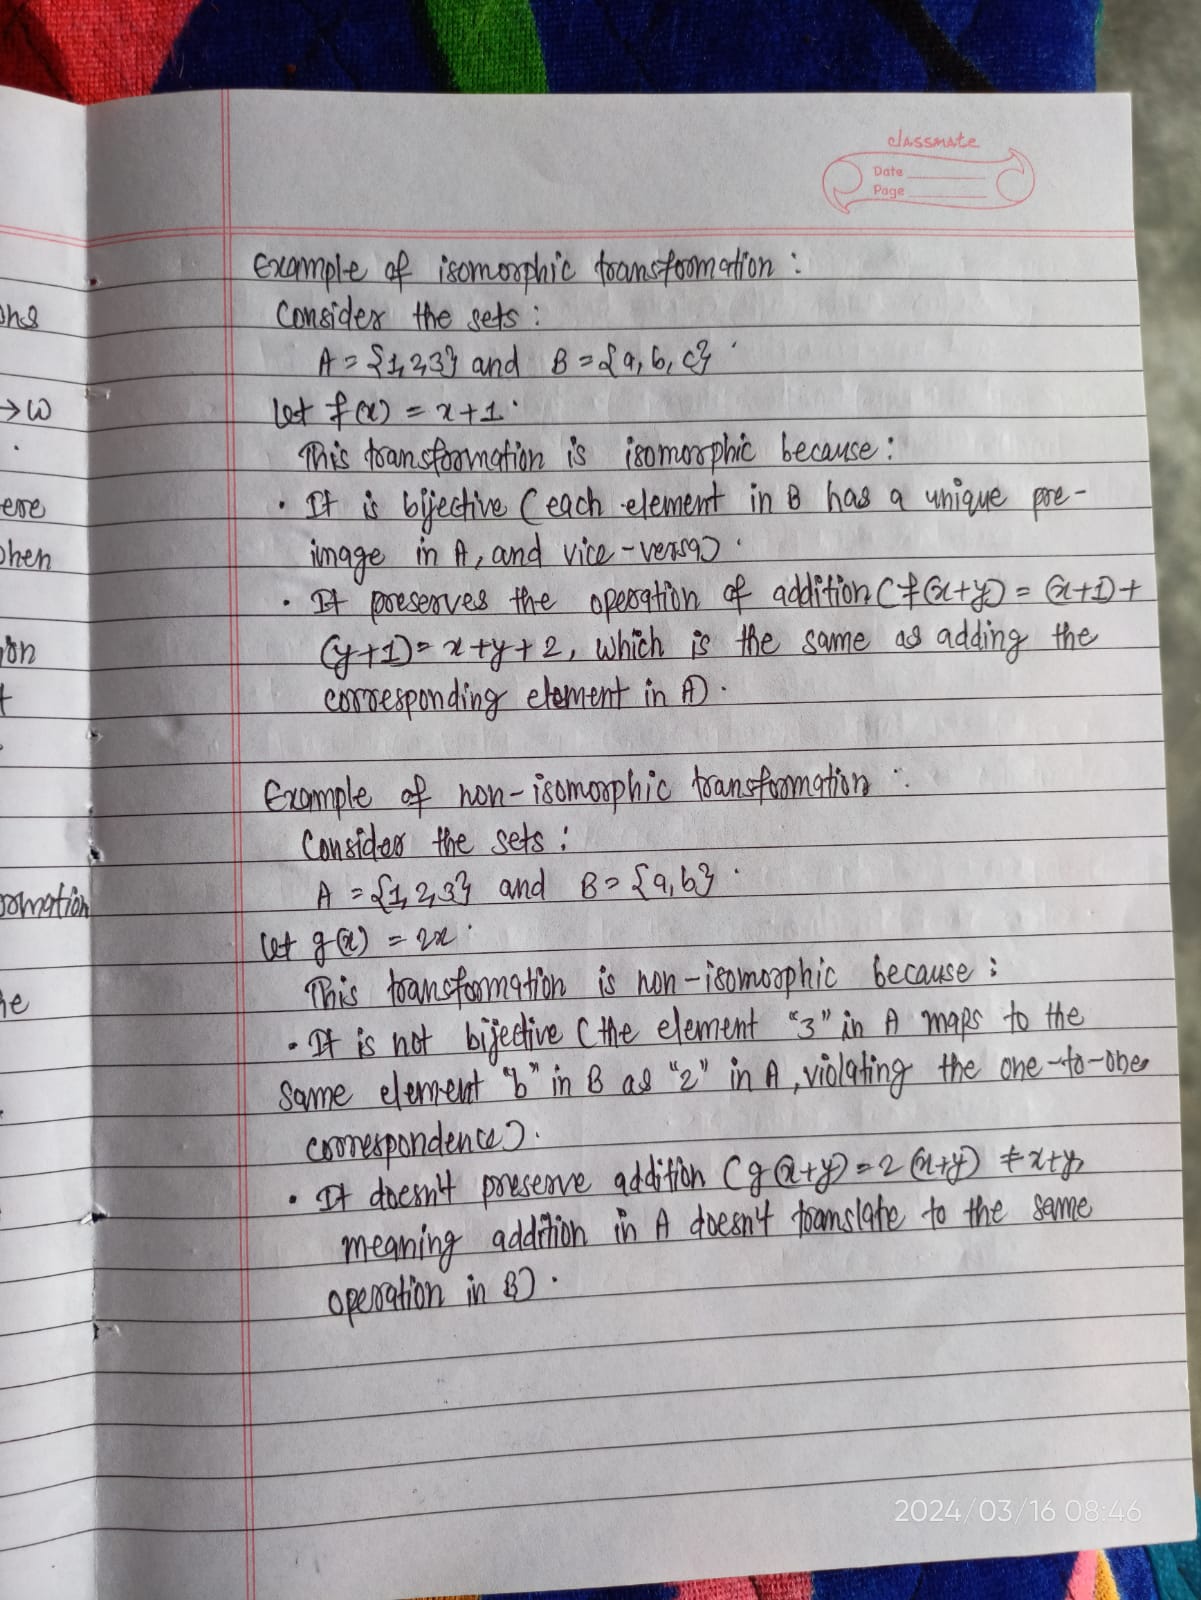 classmate
Date
Page
Example of isomorphic transformation :
Consider the sets :
A = {1, 2, 3} and B = {a, b, c} .
Let f(x) = x+1 .
This transformation is isomorphic because :
• It is bijective ( each element in B has a unique pre-
image in A, and vice-versa) .
• It preserves the operation of addition ( f(x+y) = (x+1) +
(y+1) = x+y+2, which is the same as adding the
corresponding element in A) .
Example of non-isomorphic transformation :
Consider the sets :
A = {1, 2, 3} and B = {a, b} .
Let g(x) = 2x .
This transformation is non-isomorphic because :
• It is not bijective ( the element "3" in A maps to the
same element "b" in B as "2" in A, violating the one-to-one
correspondence) .
• It doesn't preserve addition ( g(x+y) = 2(x+y) ≠ x+y,
meaning addition in A doesn't translate to the same
operation in B) .
ons
→ W
.
ere
hen
ion
t
ormation
he
2024/03/16 08:46